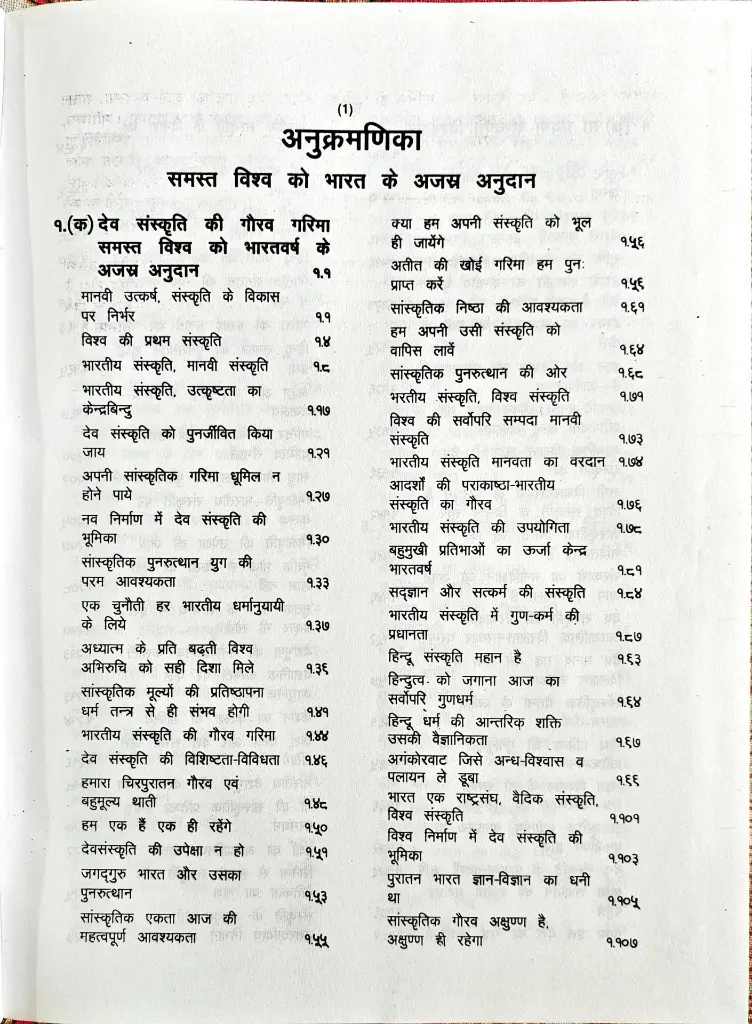 (1)
अनुक्रमणिका
समस्त विश्व को भारत के अजस्र अनुदान
१.(क) देव संस्कृति की गौरव गरिमा
समस्त विश्व को भारतवर्ष के
अजस्र अनुदान १.१
मानवी उत्कर्ष, संस्कृति के विकास
पर निर्भर १.१
विश्व की प्रथम संस्कृति १.४
भारतीय संस्कृति, मानवी संस्कृति १.८
भारतीय संस्कृति, उत्कृष्टता का
केन्द्रबिन्दु १.१७
देव संस्कृति को पुनर्जीवित किया
जाय १.२१
अपनी सांस्कृतिक गरिमा धूमिल न
होने पाये १.२७
नव निर्माण में देव संस्कृति की
भूमिका १.३०
सांस्कृतिक पुनरुत्थान युग की
परम आवश्यकता १.३३
एक चुनौती हर भारतीय धर्मानुयायी
के लिये १.३७
अध्यात्म के प्रति बढ़ती विश्व
अभिरुचि को सही दिशा मिले १.३६
सांस्कृतिक मूल्यों की प्रतिष्ठापना
धर्म तन्त्र से ही संभव होगी १.४१
भारतीय संस्कृति की गौरव गरिमा १.४४
देव संस्कृति की विशिष्टता-विविधता १.४६
हमारा चिरपुरातन गौरव एवं
बहुमूल्य थाती १.४८
हम एक हैं एक ही रहेंगे १.५०
देवसंस्कृति की उपेक्षा न हो १.५१
जगद्गुरु भारत और उसका
पुनरुत्थान १.५३
सांस्कृतिक एकता आज की
महत्वपूर्ण आवश्यकता १.५५
क्या हम अपनी संस्कृति को भूल
ही जायेंगे १.५६
अतीत की खोई गरिमा हम पुनः
प्राप्त करें १.५६
सांस्कृतिक निष्ठा की आवश्यकता १.६१
हम अपनी उसी संस्कृति को
वापिस लावें १.६४
सांस्कृतिक पुनरुत्थान की ओर १.६८
भरतीय संस्कृति, विश्व संस्कृति १.७१
विश्व की सर्वोपरि सम्पदा मानवी
संस्कृति १.७३
भारतीय संस्कृति मानवता का वरदान १.७४
आदर्शों की पराकाष्ठा-भारतीय
संस्कृति का गौरव १.७६
भारतीय संस्कृति की उपयोगिता १.७८
बहुमुखी प्रतिभाओं का ऊर्जा केन्द्र
भारतवर्ष १.८१
सद्ज्ञान और सत्कर्म की संस्कृति १.८४
भारतीय संस्कृति में गुण-कर्म की
प्रधानता १.८७
हिन्दू संस्कृति महान है १.६३
हिन्दुत्व को जगाना आज का
सर्वोपरि गुणधर्म १.६४
हिन्दू धर्म की आन्तरिक शक्ति
उसकी वैज्ञानिकता १.६७
अगंकोरवाट जिसे अन्ध-विश्वास व
पलायन ले डूबा १.६६
भारत एक राष्ट्रसंघ, वैदिक संस्कृति,
विश्व संस्कृति १.१०१
विश्व निर्माण में देव संस्कृति की
भूमिका १.१०३
पुरातन भारत ज्ञान-विज्ञान का धनी
था १.१०५
सांस्कृतिक गौरव अक्षुण्ण है,
अक्षुण्ण ही रहेगा १.१०७